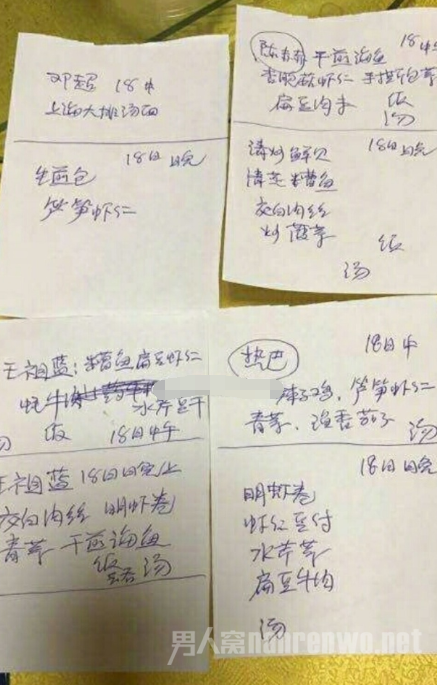 邓超 18中
上海大排汤面
18日晚
生煎包
笋笋虾仁
陈赤赤 干煎淌鱼 18中午
杏鲍菇虾仁
扁豆肉末 饭
汤
清炒鲜贝 18日晚
糟鱼
茭白肉丝
炒菠菜 饭
汤
王祖蓝:糟鱼扁豆虾仁
蚝牛 水芹豆干
饭 18日中午
王祖蓝 18日晚上
茭白肉丝 明虾卷
青菜 干煎淌鱼
饭 汤
热巴 18日中
辣子鸡,笋笋虾仁
青菜、鱼香茄子 汤
18日晚
明虾卷
虾仁豆付
水芹菜
扁豆牛肉
汤
男人窝nanrenwo.net